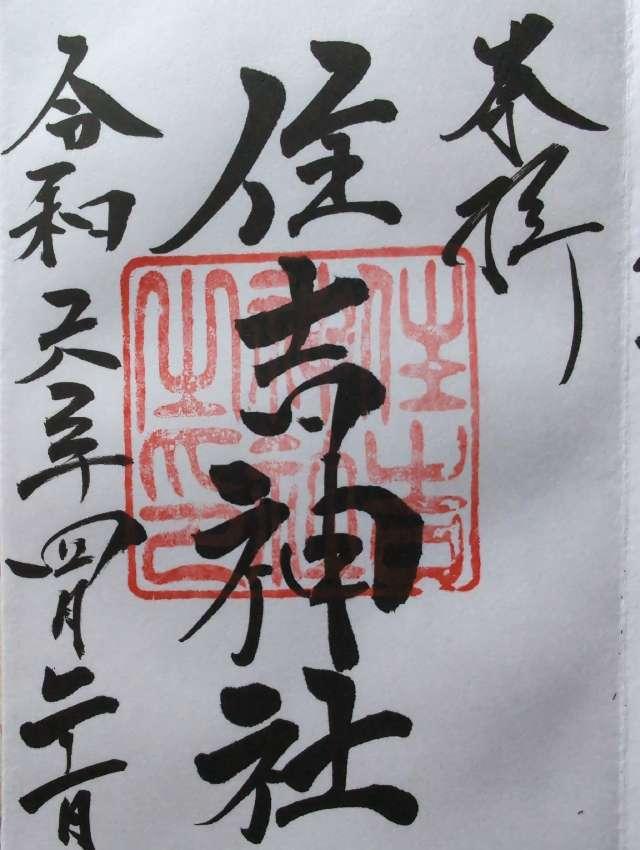 奉拝
住吉神社
令和六年四月二十一日
住吉
之印